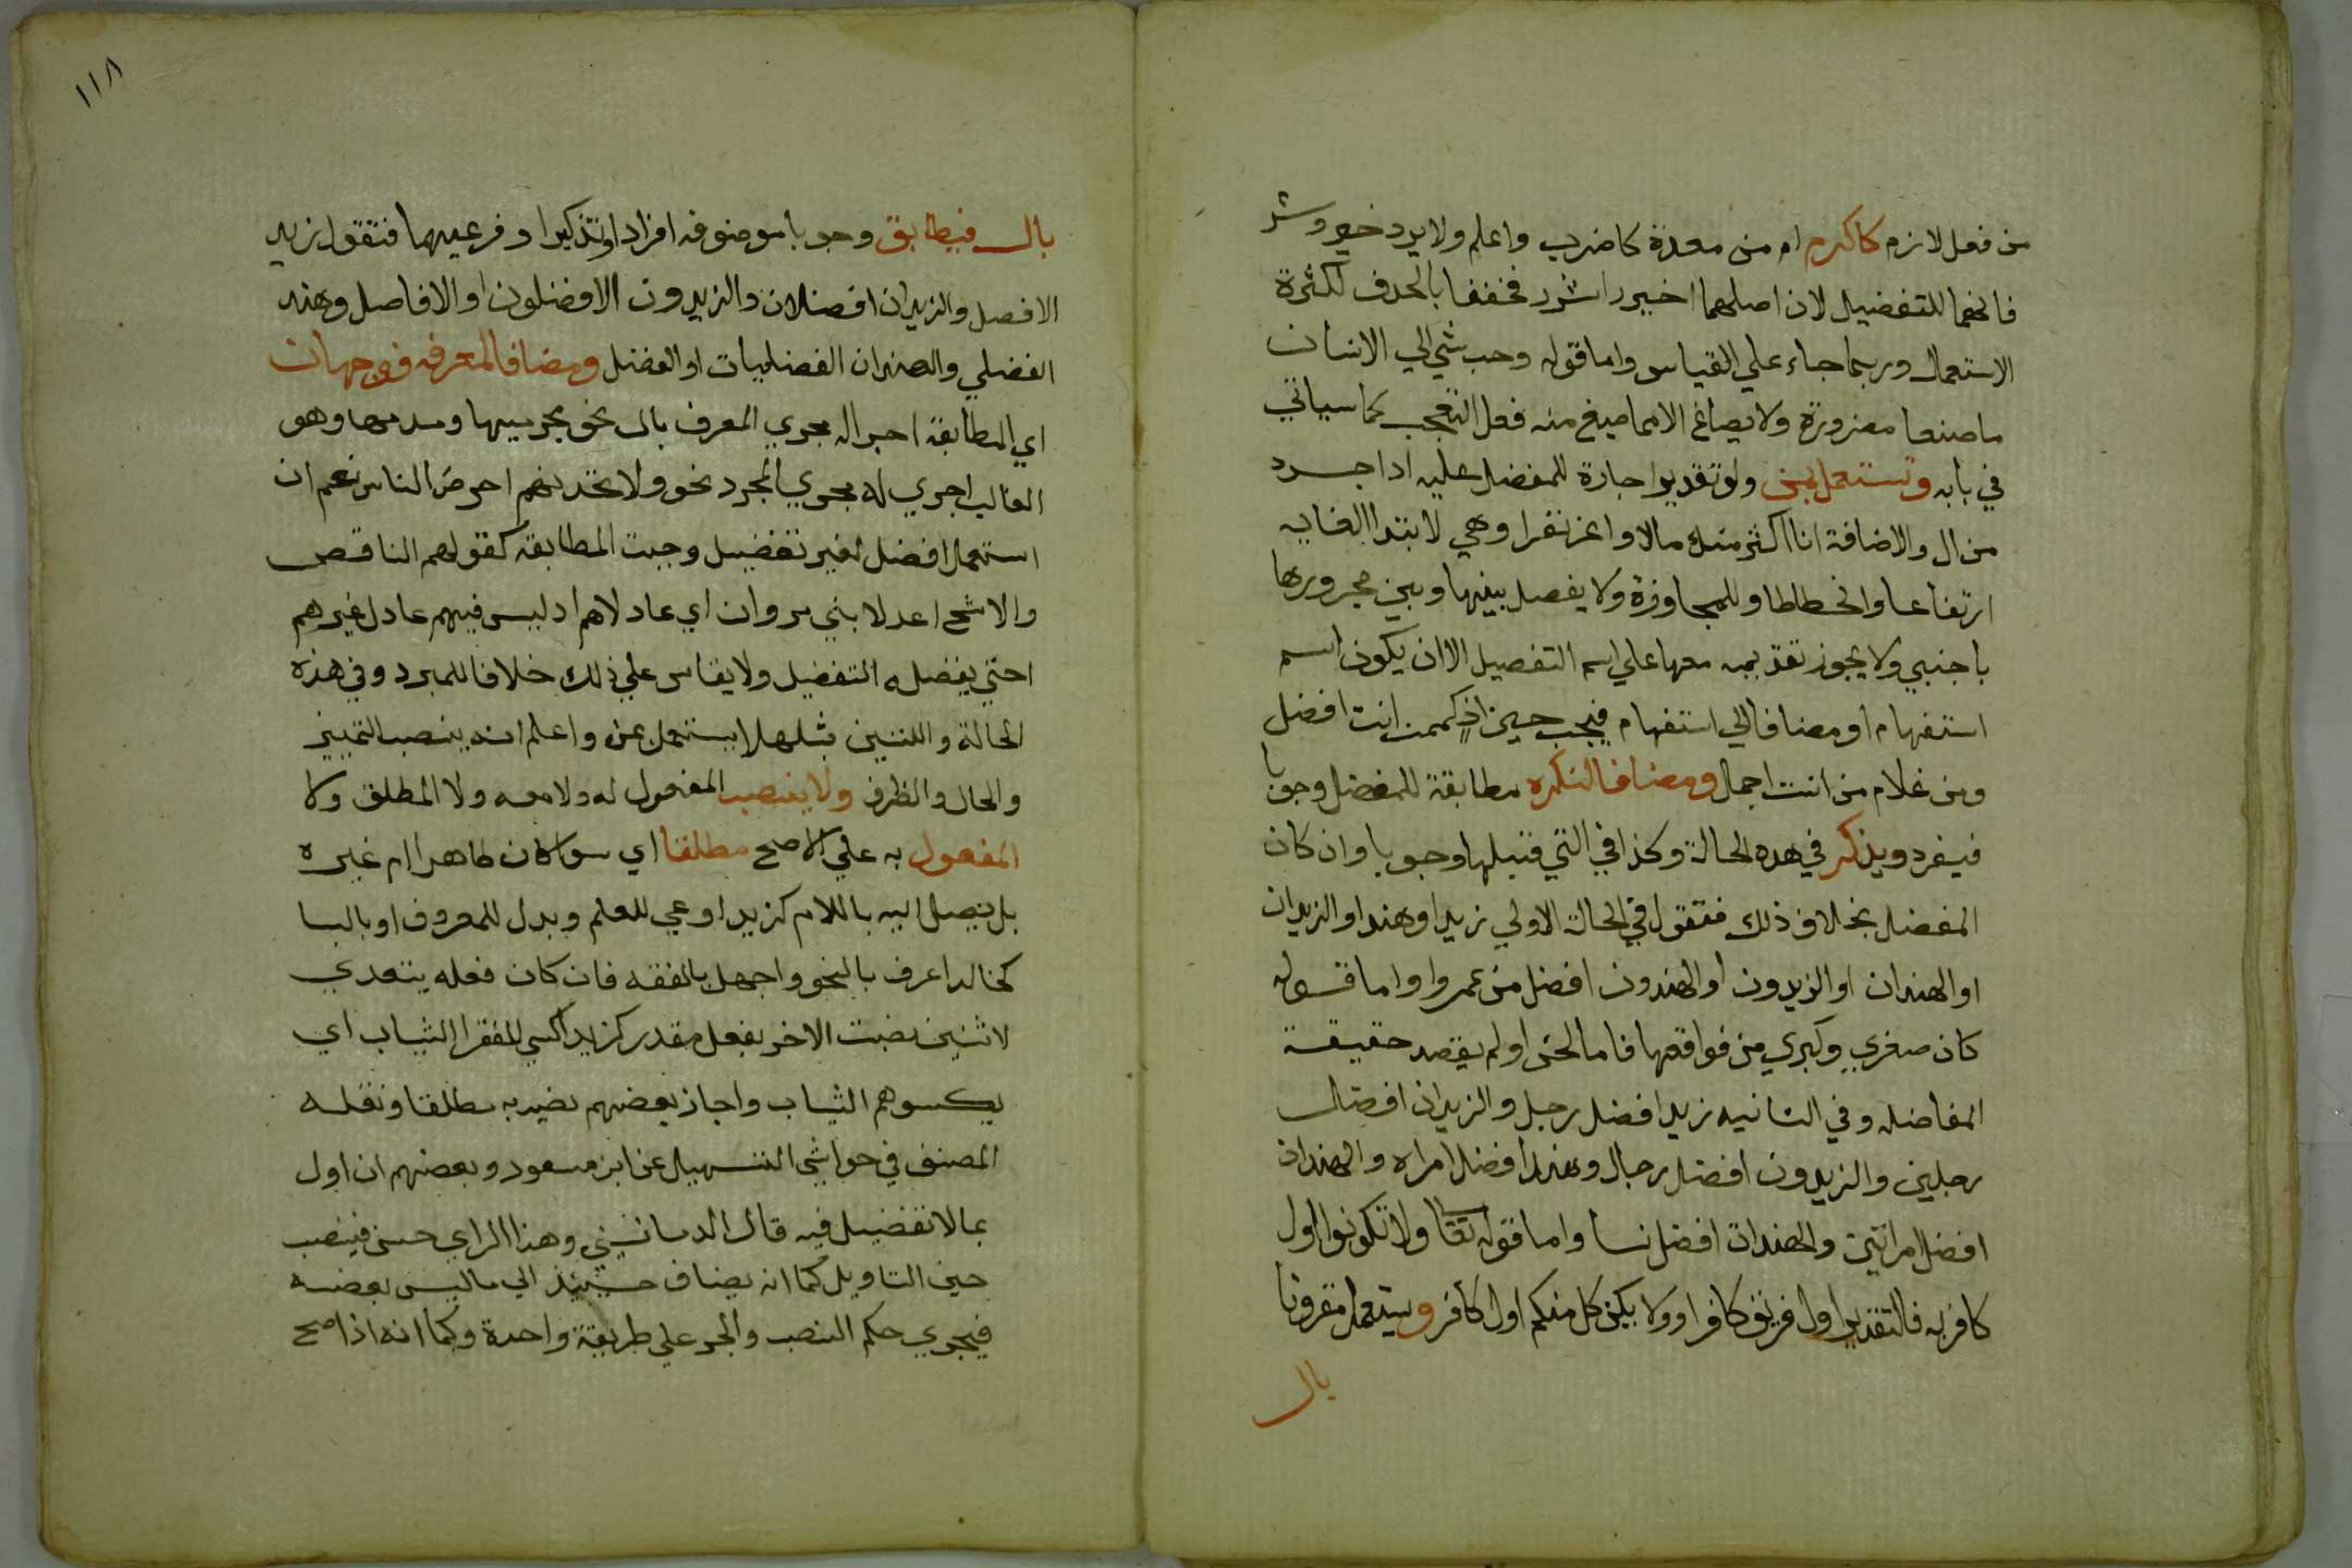 من فعل لازم كاكرم ام من معدة كاضرب واعلم ولا يرد خير وشر
فانهما للتفضيل لان اصلهما اخير واشرر فخففا بالحدف لكثرة
الاستعمال وربما جاء علي القياس واما قوله وحب شي الي الانسان
ما منعا فضرورة ولا يصاغ الا مما صيغ منه فعل التعجب كما سياتي
في بابه وتستعمل بمن ولو تقديرا جارة للمفضل عليه اذا جرد
من ال والاضافة انا اكثر منك مالا واعز نفرا وهي لابتدا الغايه
ارتفاعا وانحطاطا وللمجاوزة ولا يفصل بينها وبين مجرورها
باجنبي ولا يجوز تقديمه معها علي اسم التفصيل الا ان يكون اسم
استفهام او مضافا الي استفهام فيجب حين اذٍ كممن انت افضل
ومن غلام من انت اجمال ومضافا لنكره مطابقة للمفضل وجوبا
فيفرد ويذكر في هده الحالة وكذا في التي قبلها وجوبا وان كان
المفضل بخلاف ذلك فتقول في الحالة الاولي زيدا وهندا والزيدان
او الهندان او الزيدون او الهندون افضل من عمروا واما قوله
كان صغري وكبري من فواقعها فاما لحن او لم يقصد حقيقة
المفاضله وفي الثانيه زيدا فضل رجل والزيدان افضل
رجلين والزيدون افضل رجال وهندا فضل امراه والهندان
افضل امراتين والهندات افضل نسا واما قوله تعا ولا تكونوا اول
كافر به فالتقدير اول فريق كافر او ولا يكن كل منكم اول كافر ويستعمل مقرونا
بال
١١٨
بال فيطابق وجوبا موصوفه افرادا وتذكيرا وفرعيهما فتقول زيد
الافصل والزيدان افضلان والزيدون الافضلون او الافاصل وهند
الفضلي والهندان الفضليات او الفضل ومضافا لمعرفه فوجهان
اي المطابقة اجرا له مجري المعرف بال نحو مجرميها وهو
الغالب اجري له مجري المجرد نحو ولا تجدنهم احرص الناس نعم ان
استعمل افضل لغير تفضيل وجبت المطابقة كقولهم الناقص
والاشج اعدلا بني مروان اي عادلاهم اد ليس فيهم عادل غيرهم
احتي يفضل ه التفضيل ولا يقاس علي ذلك خلافا للمبرد وفي هذه
الحالة واللتين قبلها لا يستعمل بمن واعلم انه ينصب التمييز
والحال والظرف ولا ينصب المفعول له ولا معه ولا المطلق ولا
المفعول به علي الاصح مطلقا اي سوا كان ظاهرا ام غيره
بل يصل اليه باللام كزيد اوعي للعلم وبدل للمعروف او بالبا
كخالد اعرف بالنحو واجهل بالفقه فان كان فعله يتعدي
لاثنين نصبت الاخر بفعل مقدر كزيد اكسي للفقرا الثياب اي
يكسوهم الثياب واجاز بعضهم نصبه به مطلقا ونقله
المصنف في حواشي التسهيل عن ابن مسعود وبعضهم ان اول
بما لا تفضيل فيه قال الدمانيني وهذا الراي حسن فينصب
حين التاويل كما انه يضاف حينئذ الي ما ليس بعضه
فيجري حكم النصب والجر علي طريقة واحدة وكما انه اذا صح